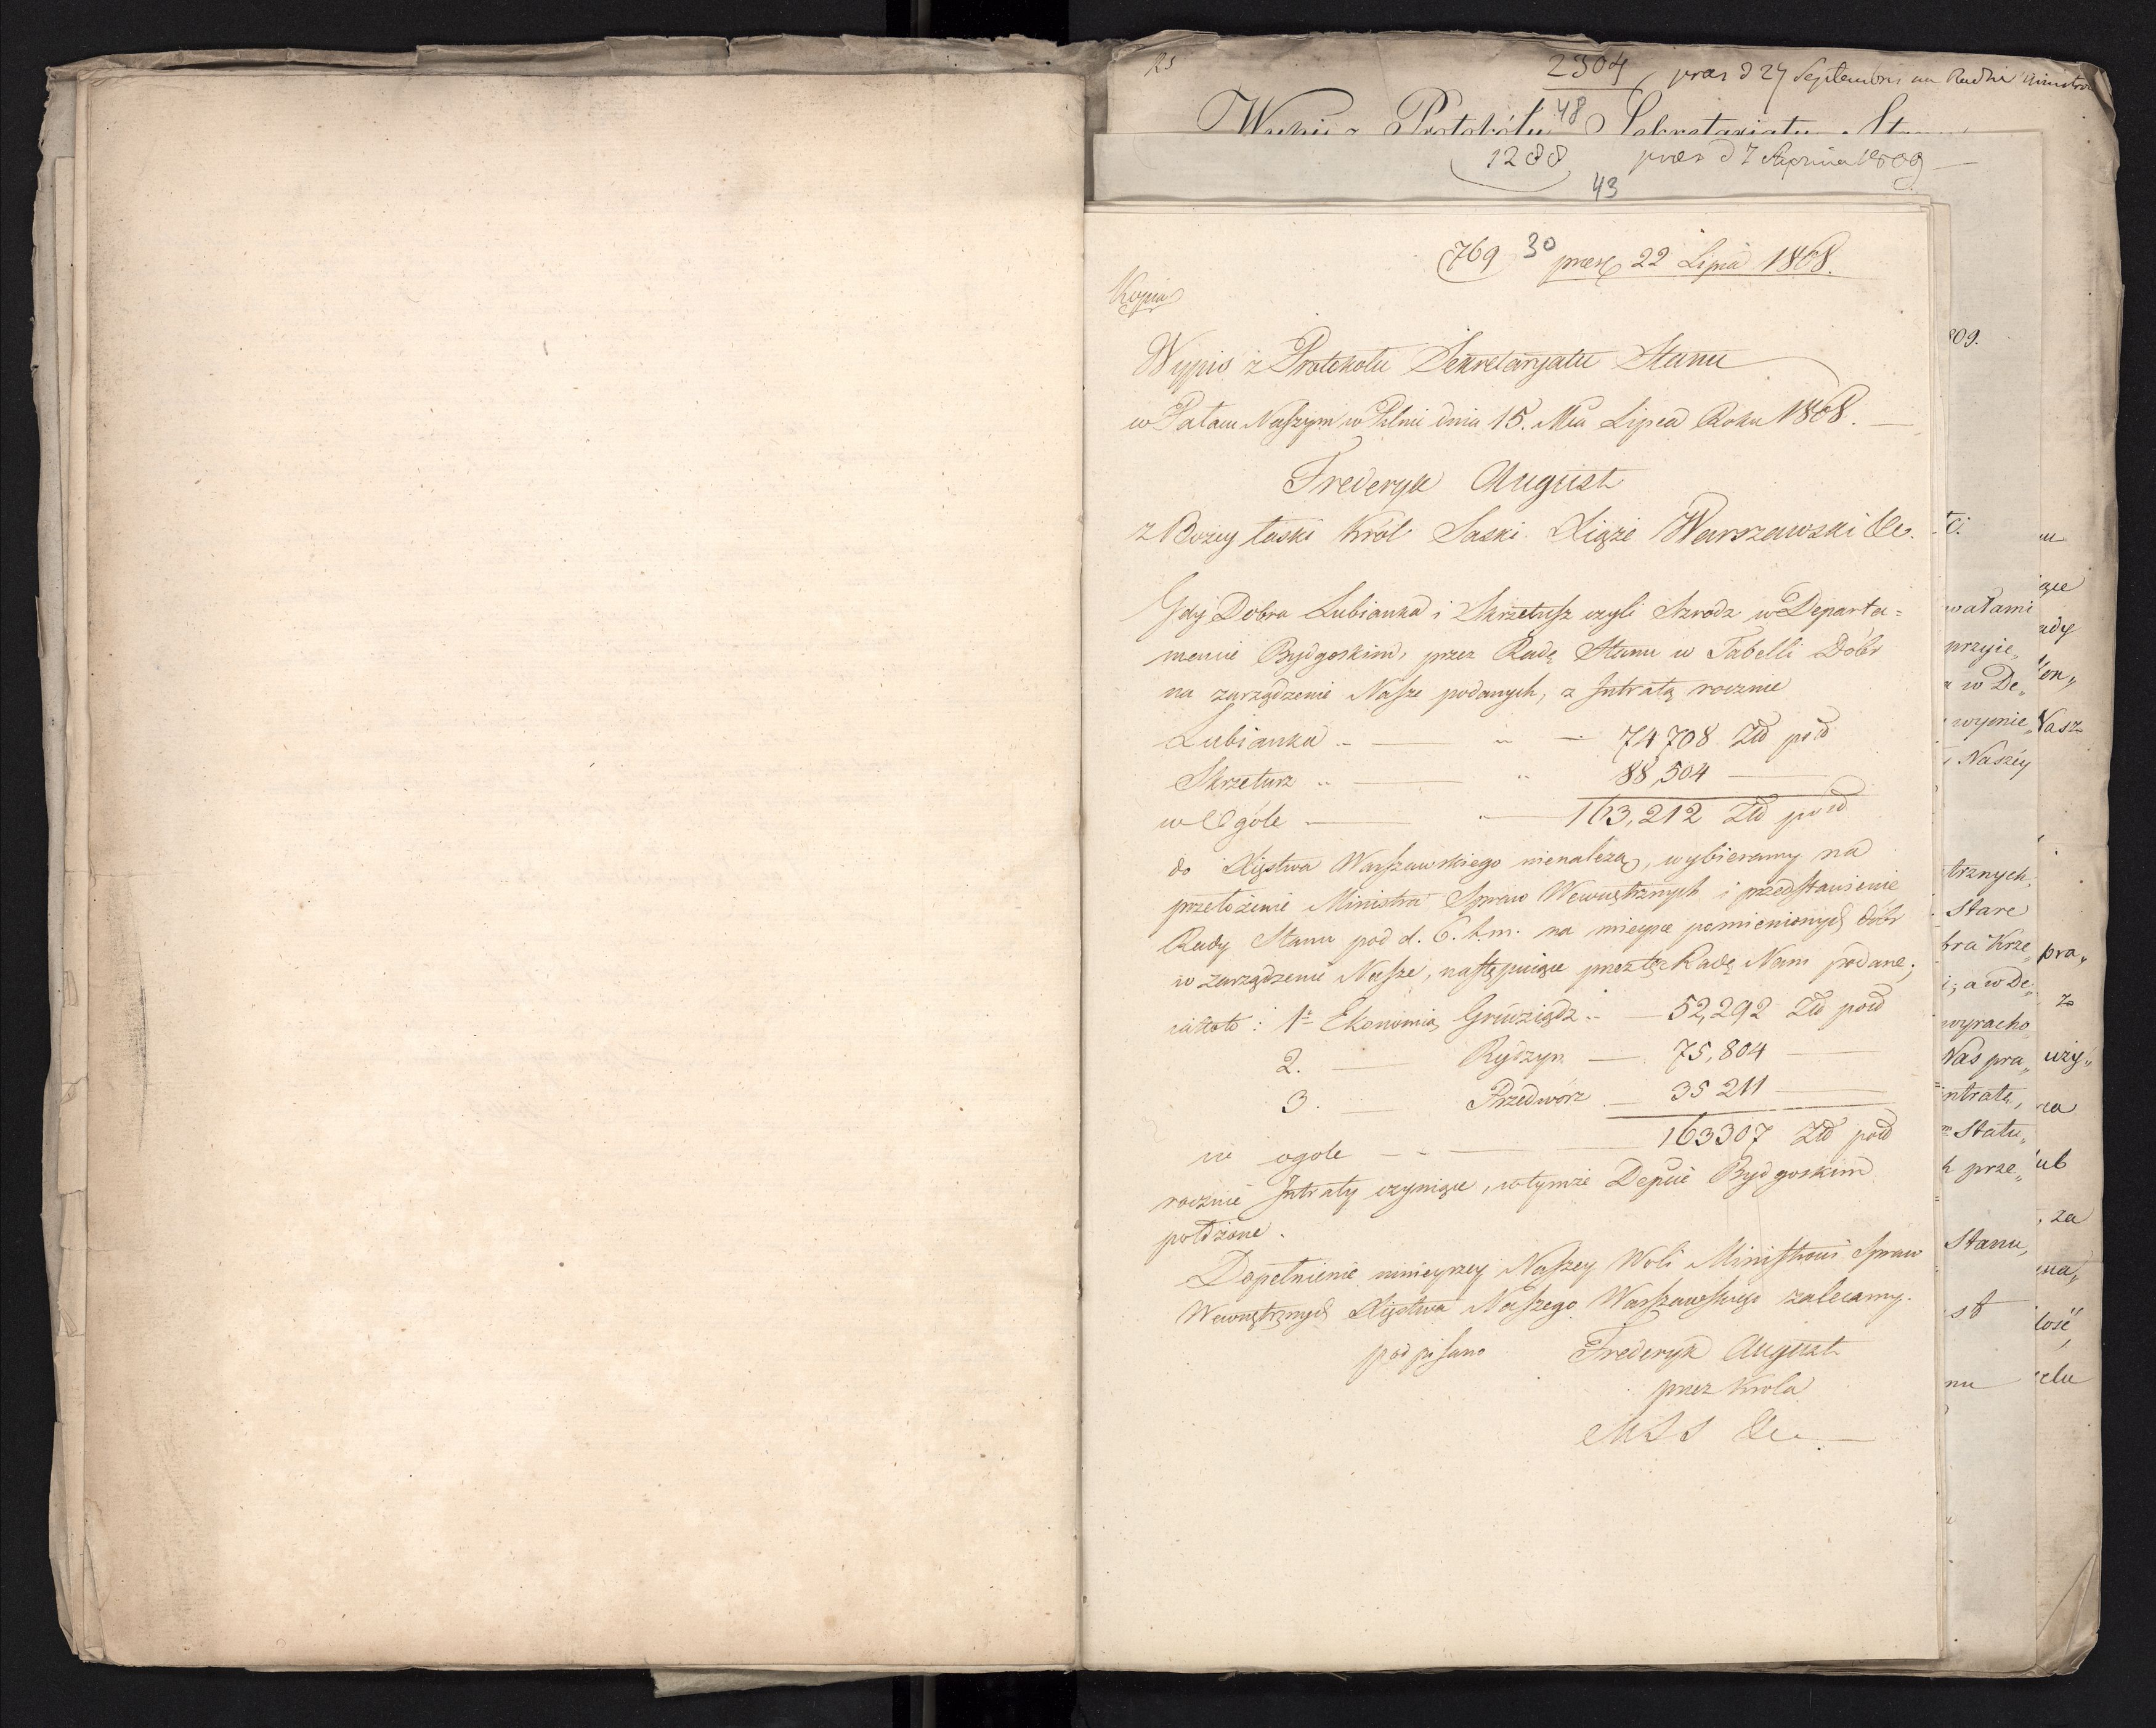 25
2304 praes d 27 Septembris na Radzie
48
Wypis z Protokółu Sekretariatu
1288 praes d 7 1809
43
769 30 praes 22 Lipca 1808.
Kopia
Wypis z Protokołu Sekretaryatu Stanu
w Pałacu Naszym w Pilnic dnia 15. Mca Lipca Roku 1808.
Frederyk August
z Bożey łaski Król Saski Xiąże Warszawski &c.
Gdy Dobra Lubianka i Skrzetusz czyli Szrodz w Departa=
mencie Bydgoskim, przez Radę Stanu w Tabelli Dóbr
na zarządzenie Nasze podanych, z Intratą rocznie
Lubianka .. — .. — 74,708 Złł pold
Skrzetusz .. — .. 88,504 —
w Ogóle — .. — 163,212 Złł pold
do Xięstwa Warszawskiego nienależą, wybieramy na
przełożenie Ministra Spraw Wewnętrznych i przedstawienie
Rady Stanu pod d. 6. b.m. na mieysce pomienionych dóbr
w zarządzenie Nasze, następuiące przez tęż Radę Nam podane;
iakoto: 1= Ekonomia Grudziądz .. — 52,292 Złł pold
2. — Rydzyn — 75,804 —
3. — Przedworz — 35 211 —
w ogole - - — 163307 Złł pold
rocznie Intraty czyniące, w tymże Depcie Bydgoskim
położone.
Dopełnienie ninieyszey Naszey Woli Ministrowi Spraw
Wewnętrznych Xięstwa Naszego Warszawskiego zalecamy.
podpisano Frederyk August
przez Krola
MSS &c.
809.
ci.
wałami
przyie„
w De„
wymie„
Naszéy
trznych,
Stare
bra Krze„
i; a w De„
wyracho
Nas pra„
ntratę,
Statu„
prze„
Stanu,
st
nu
ące
ady
Kon„
Nasz
pra„
z
uży„
ca
ub
, za
na„
łość,
elu